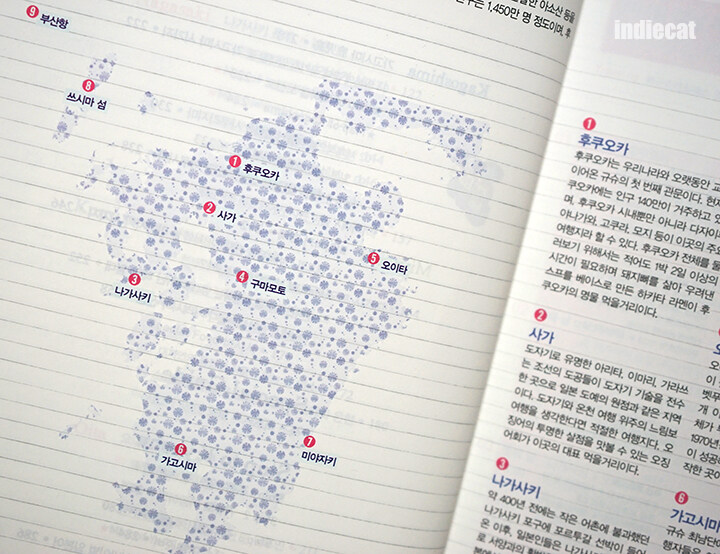 indiecat
1,450만 명 정도이며, 후
9 부산항
8
쓰시마 섬
1 후쿠오카
2 사가
3
나가사키
4 구마모토
5 오이타
6
가고시마
7
미야자키
1
후쿠오카
후쿠오카는 우리나라와 오랫동안 교
이어온 규슈의 첫 번째 관문이다. 현
쿠오카에는 인구 140만이 거주하고 있
며, 후쿠오카 시내뿐만 아니라 다자이
야나가와, 고쿠라, 모지 등이 이곳의 주요
여행지라 할 수 있다. 후쿠오카 전체를 둘
러보기 위해서는 적어도 1박 2일 이상의
시간이 필요하며 돼지뼈를 삶아 우려낸
스프를 베이스로 만든 하카타 라멘이 후
쿠오카의 명물 먹을거리이다.
2
사가
도자기로 유명한 아리타, 이마리, 가라쓰
는 조선의 도공들이 도자기 기술을 전수
한 곳으로 일본 도예의 원점과 같은 지역
이다. 도자기와 온천 여행 위주의 느림보
여행을 생각한다면 적절한 여행지다. 오
징어의 투명한 살점을 맛볼 수 있는 오징
어회가 이곳의 대표 먹을거리이다.
3
나가사키
약 400년 전에는 작은 어촌에 불과했던
나가사키 포구에 포르투갈 선박이
온 이후, 일본인들은 나가사키
로 서양과의
오
이
벳푸
개
체가
1970년
이 성공
작한 곳
6
가고시마
규슈 최남단
행자들은